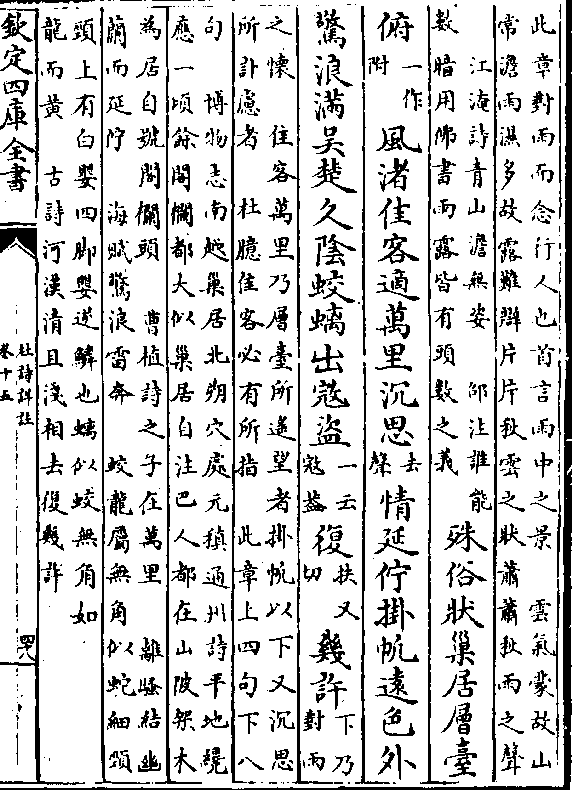 此章對雨而念行人也首言雨中之景　雲氣蒙故山
常澹雨濕多故露難辯片片秋雲之狀蕭蕭秋雨之聲
江淹詩青山澹無姿　邵注誰能
數暗用佛書雨露皆有頭數之義
殊俗狀巢居層臺
俯一作附風渚佳客適萬里沉思去聲情延佇掛帆遠色外
驚浪滿吳楚久陰蛟螭出寇盜一云寇盜復扶又切幾許下乃對雨
之懷　佳客萬里乃層臺所遥望者掛帆以下又沉思
所計慮者　杜臆佳客必有所指　此章上四句下八
句　博物志南越巢居北朔穴處元稹通州詩平地纔
應一頃餘閣欄都大似巢居自注巴人都在山陂架木
為居自號閣欄頭　曹植詩之子在萬里　離騷結幽
蘭而延佇　海賦驚浪雷奔　蛟龍屬無角似蛇細頸
頸上有白嬰四脚嬰逆鱗也螭似蛟無角如
龍而黄　古詩河漢清且淺相去復幾許
欽定四庫全書
杜詩詳註
卷十五